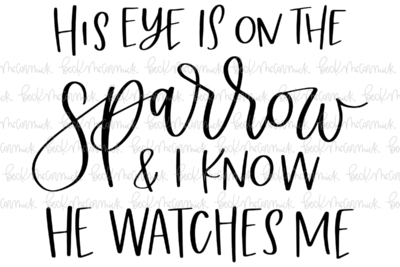 HIS EYE IS ON THE
sparrow
& I KNOW
HE WATCHES ME